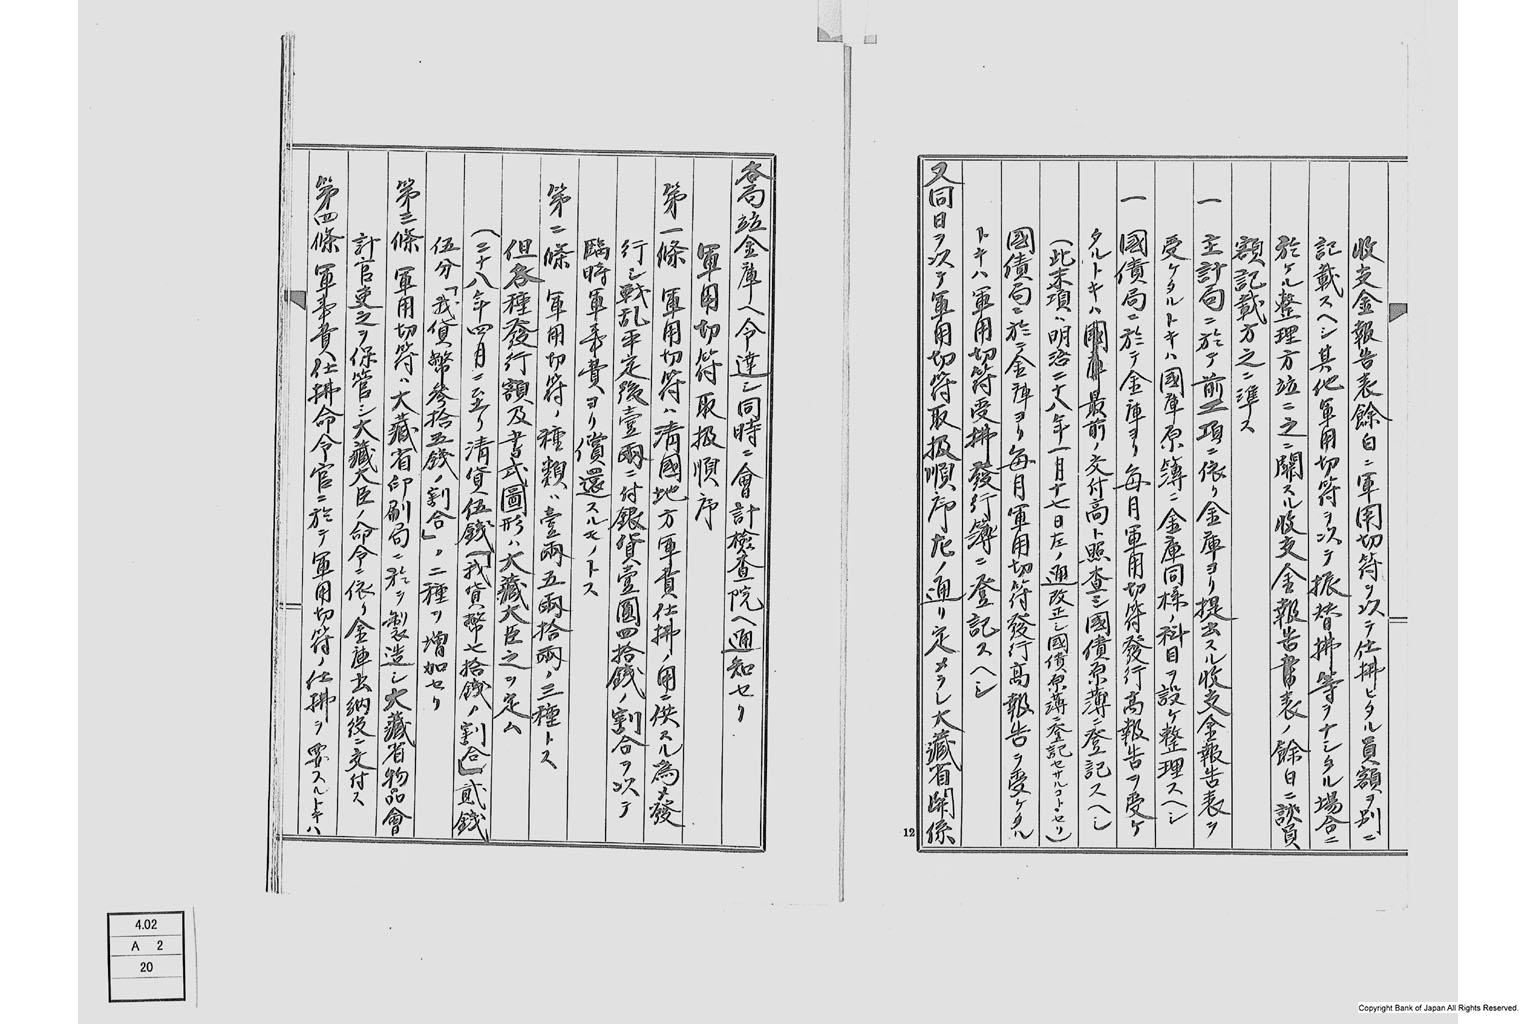 収支金報告表餘白ニ軍用切符ヲ以テ仕拂ヒタル員額ヲ別ニ
記載スヘシ其他軍用切符ヲ以テ振替拂等ヲナシタル場合ニ
於ケル整理方竝ニ之ニ関スル収支金報告書表ノ餘白ニ該員
額記載方之ニ準ス
一 主計局ニ於テ前二項ニ依リ金庫ヨリ提出スル収支金報告表ヲ
受ケタルトキハ國庫原簿ニ金庫同様ノ科目ヲ設ケ整理スヘシ
一 國債局ニ於テ金庫ヨリ毎月軍用切符發行高報告ヲ受ケ
タルトキハ最前ノ交付高ト照査シ國債原簿ニ登記スヘシ
(此末項ハ明治二十八年一月十七日左ノ通改正シ國債原簿ニ登記セサルコトヽセリ)
國債局ニ於テ金庫ヨリ毎月軍用切符發行高報告ヲ受ケタル
トキハ軍用切符受拂發行簿ニ登記スヘシ
又同日ヲ以テ軍用切符取扱順序左ノ通リ定メラレ大藏省関係
12
各局竝金庫ヘ令達シ同時ニ會計檢査院ヘ通知セリ
軍用切符取扱順序
第一條 軍用切符ハ清國地方軍費仕拂ノ用ニ供スル為メ發
行シ戰乱平定後壹兩ニ付銀貨壹圓四拾錢ノ割合ヲ以テ
臨時軍事費ヨリ償還スルモノトス
第二條 軍用切符ノ種類ハ壹兩五兩拾兩ノ三種トス
但各種發行額及書式圖形ハ大藏大臣之ヲ定ム
(二十八年四月ニ至リ清貨伍錢「我貨幣七拾錢ノ割合」貳錢
伍分「我貨幣參拾五錢ノ割合」ノ二種ヲ増加セリ
第三條 軍用切符ハ大藏省印刷局ニ於テ製造シ大藏省物品會
計官吏之ヲ保管シ大藏大臣ノ命令ニ依リ金庫出納役ニ交付ス
第四條 軍事費仕拂命令官ニ於テ軍用切符ノ仕拂ヲ要スルトキハ
4.02
A 2
20
Copyright Bank of Japan All Rights Reserved.